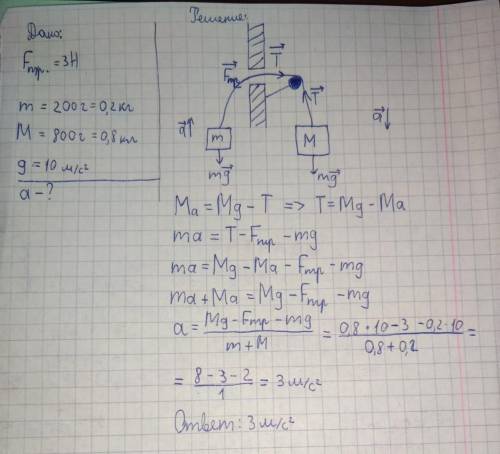 Дано:
Fтр. = 3Н
m = 200г = 0,2кг
M = 800г = 0,8кг
g = 10 м/с²
a - ?
Решение:
T
Fтр
T
a
m
M
a
mg
mg
Ma = Mg - T => T = Mg - Ma
ma = T - Fтр - mg
ma = Mg - Ma - Fтр - mg
ma + Ma = Mg - Fтр - mg
a = (Mg - Fтр - mg)/(m + M) = (0,8 * 10 - 3 - 0,2 * 10)/(0,8 + 0,2) =
= (8 - 3 - 2)/1 = 3 м/с²
Ответ: 3 м/с²